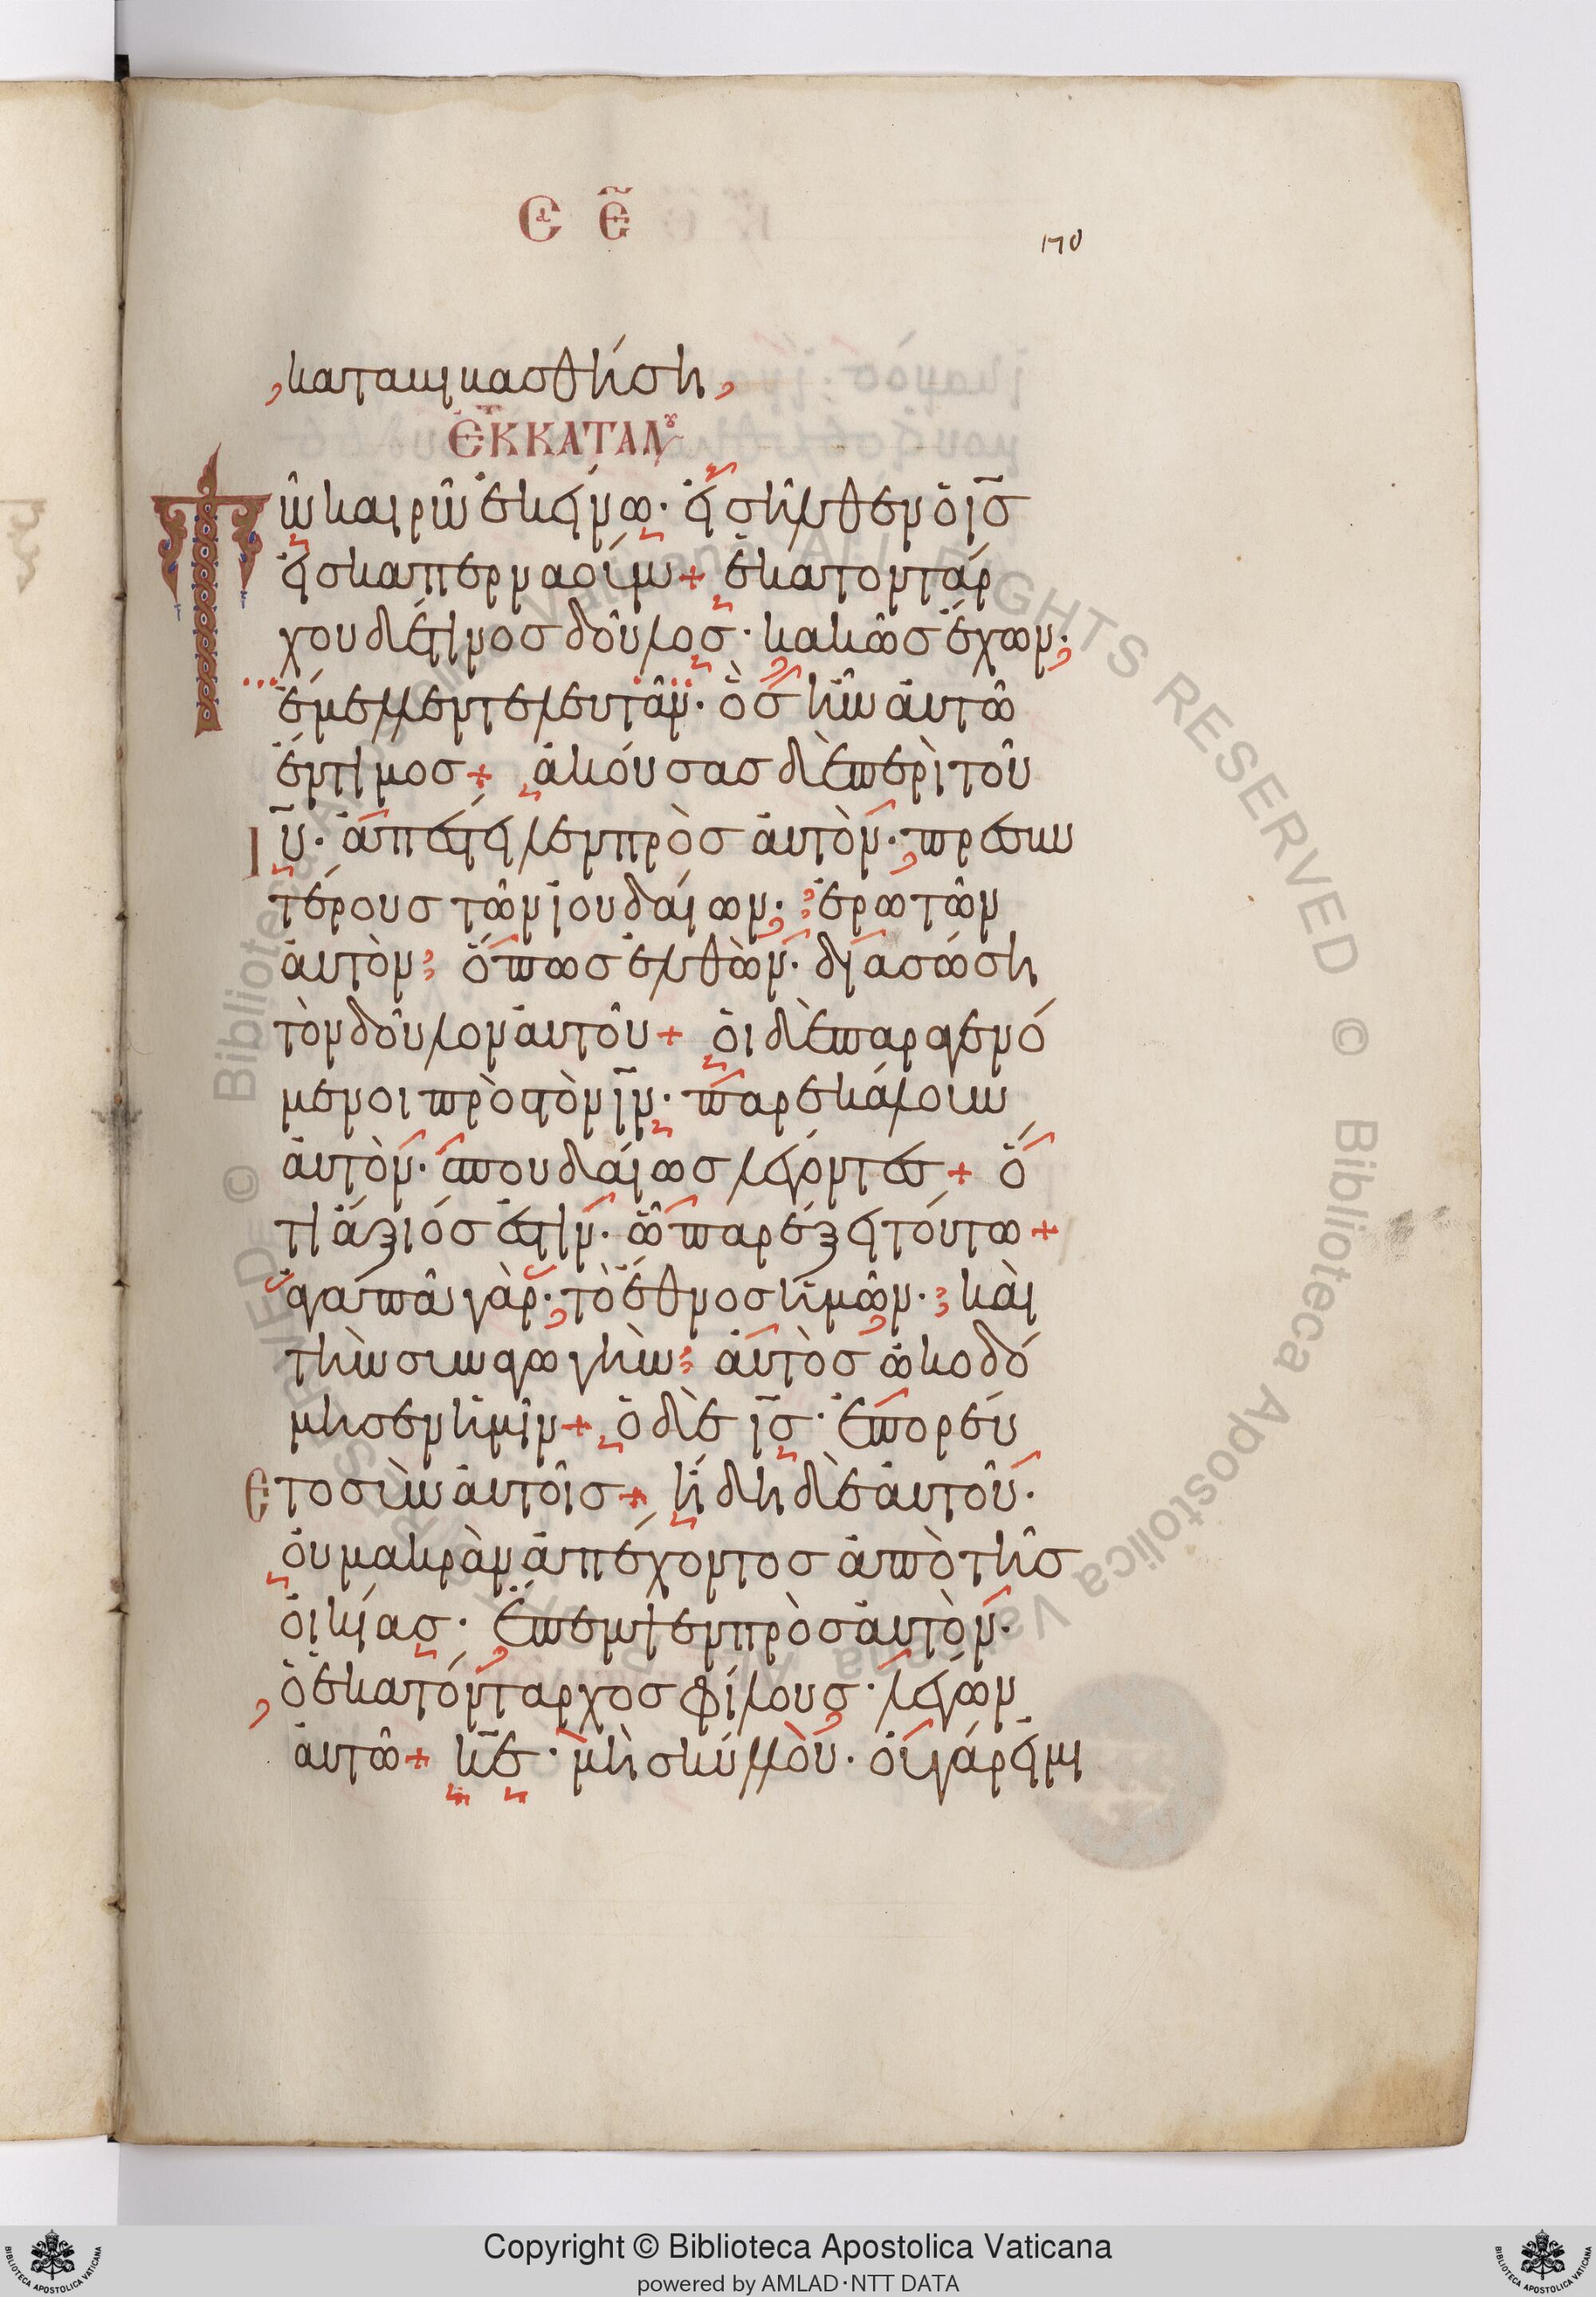 Ϲα Ε̃
170
καταδικασθήση,
ἘΚ ΚΑΤΑ Λου
Τῶ καιρῶ ἐκείνω· εἰσῆλθεν ὁ ις̅
εἰς καπερναούμ + ἑκατοντάρ
χου δέ τινος δοῦλος· κακῶς ἔχων·
ἔμελλεν τελευτᾶν· ὃς ἦν αὐτῶ
ἔντιμος + ἀκούσας δὲ περὶ τοῦ
ιυ̅· ἀπέστειλεν πρὸς αὐτὸν· πρεσβυ
τέρους τῶν ἰουδαίων· ἐρωτῶν
αὐτὸν ὅπως ἐλθὼν· διασώση
τὸν δοῦλον αὐτοῦ + οἱ δὲ παραγενό
μενοι πρὸς τὸν ιν̅· παρεκάλουν
αὐτὸν· σπουδαίως λέγοντες + ὅ
τι ἄξιός ἐστιν· ὧ παρέξει τούτω +
ἀγαπᾶ γὰρ· τὸ ἔθνος ἡμῶν· καὶ
τὴν συναγωγὴν αὐτὸς ὠκοδό
μησεν ἡμῖν + ὁ δὲ ις̅· ἐπορεύ
ετο σὺν αὐτοῖς + ἤδη δὲ αὐτοῦ·
οὐ μακρὰν ἀπέχοντος ἀπὸ τῆς
οἰκίας· ἔπεμψεν πρὸς αὐτὸν·
ὁ ἑκατόνταρχος φίλους· λέγων
αὐτῶ + κε̅· μὴ σκύλλου· οὐ γάρ εἰμι
Copyright © Biblioteca Apostolica Vaticana
powered by AMLAD·NTT DATA